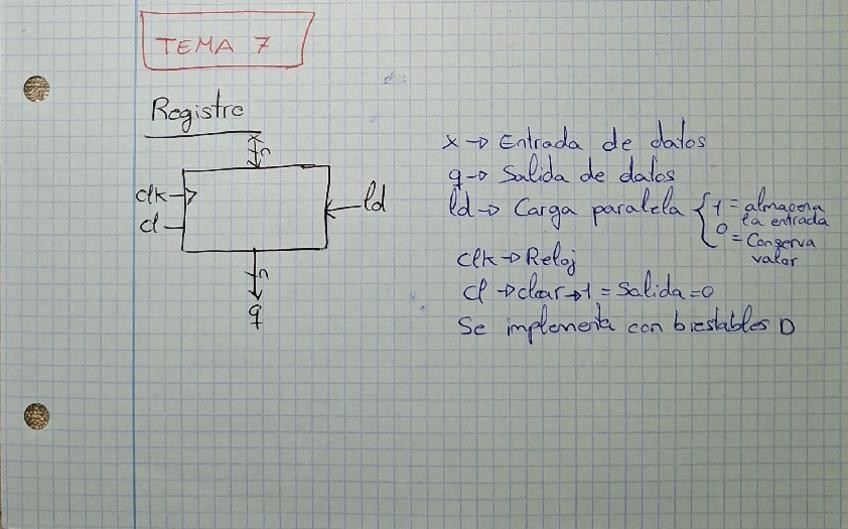 TEMA 7
Registro
x
n
clk
cl
ld
n
q
x → Entrada de datos
q → Salida de datos
ld → Carga paralela { 1 = almacena
la entrada
0 = Conserva
valor
clk → Reloj
cl → clear → 1 = Salida = 0
Se implementa con biestables D